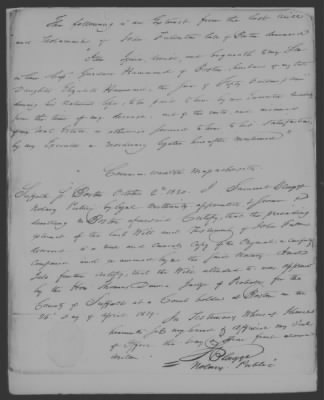 The following is an Extract from the last Will
and Testament of John Fullerton late of Boston deceased
"Item I give, devise, and bequeath to my Son
in Law Capt. Gardner Hammond of Boston husband of my late
Daughter Elizabeth Hammond, the Sum of Fifty pounds p ann
during his Natural life, to be paid to him by my Executor
from the time of my decease, out of the rents and
of my real Estate or otherwise secured to him to his satisfaction
by my Executor or residuary legatee hereafter mentioned"
Commonwealth Massachusetts
Suffolk Ss Boston October 2d 1820. I Samuel
Notary Publick by legal authority appointed & sworn
dwelling in Boston aforesaid Certify, that the preceding
extract of the last Will and Testament of John
deceased is a true and correct Copy of the Original, a careful
comparison and examined by me the said Notary And I
do further certify, that the Will alluded to was approved
by the Hon Thomas Dawes Judge of Probate for the
County of Suffolk at a Court holden at Boston on the
26th Day of April 1819. In Testimony Whereof I have
hereunto set my hand & affixed my Seal
of Office the Day & Year first above
written
Notary Public